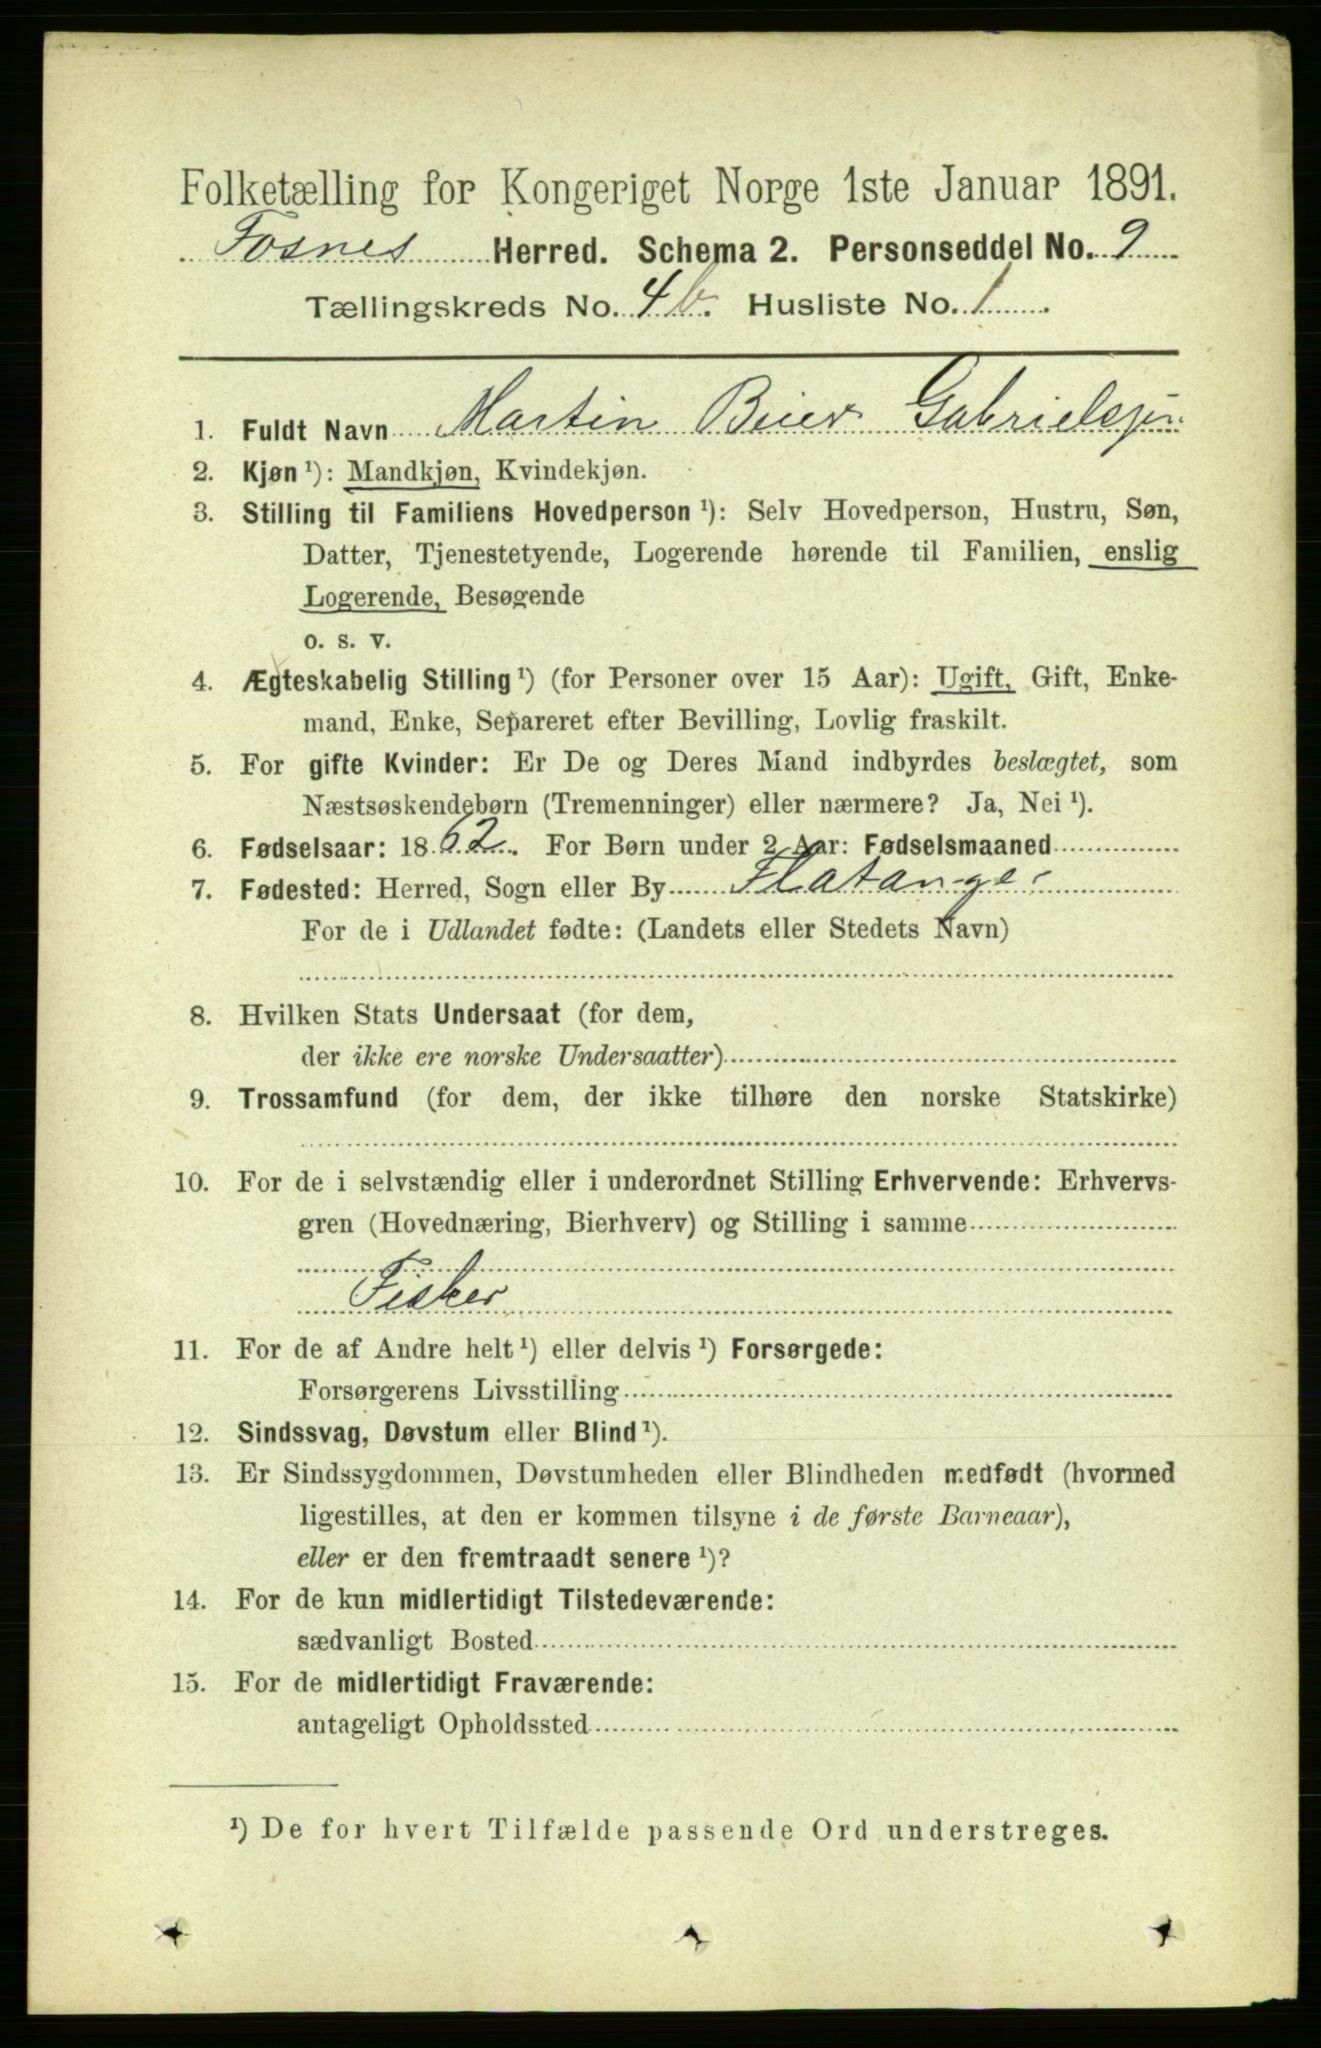 Folketælling for Kongeriget Norge 1ste Januar 1891.
Fosnes Herred. Schema 2. Personseddel No. 9
Tællingskreds No. 4 b. Husliste No. 1.
1. Fuldt Navn Martin Beier Gabrielsen
2. Kjøn ¹): Mandkjøn, Kvindekjøn.
3. Stilling til Familiens Hovedperson ¹): Selv Hovedperson, Hustru, Søn,
Datter, Tjenestetyende, Logerende hørende til Familien, enslig
Logerende, Besøgende
o. s. v.
4. Ægteskabelig Stilling ¹) (for Personer over 15 Aar): Ugift, Gift, Enke-
mand, Enke, Separeret efter Bevilling, Lovlig fraskilt.
5. For gifte Kvinder: Er De og Deres Mand indbyrdes beslægtet, som
Næstsøskendebørn (Tremenninger) eller nærmere? Ja, Nei ¹).
6. Fødselsaar: 1862. For Børn under 2 Aar: Fødselsmaaned
7. Fødested: Herred, Sogn eller By Flatanger
For de i Udlandet fødte: (Landets eller Stedets Navn)
8. Hvilken Stats Undersaat (for dem,
der ikke ere norske Undersaatter)
9. Trossamfund (for dem, der ikke tilhøre den norske Statskirke)
10. For de i selvstændig eller i underordnet Stilling Erhvervende: Erhvervs-
gren (Hovednæring, Bierhverv) og Stilling i samme
Fisker
11. For de af Andre helt ¹) eller delvis ¹) Forsørgede:
Forsørgerens Livsstilling
12. Sindssvag, Døvstum eller Blind ¹).
13. Er Sindssygdommen, Døvstumheden eller Blindheden medfødt (hvormed
ligestilles, at den er kommen tilsyne i de første Barneaar),
eller er den fremtraadt senere ¹)?
14. For de kun midlertidigt Tilstedeværende:
sædvanligt Bosted
15. For de midlertidigt Fraværende:
antageligt Opholdssted
¹) De for hvert Tilfælde passende Ord understreges.